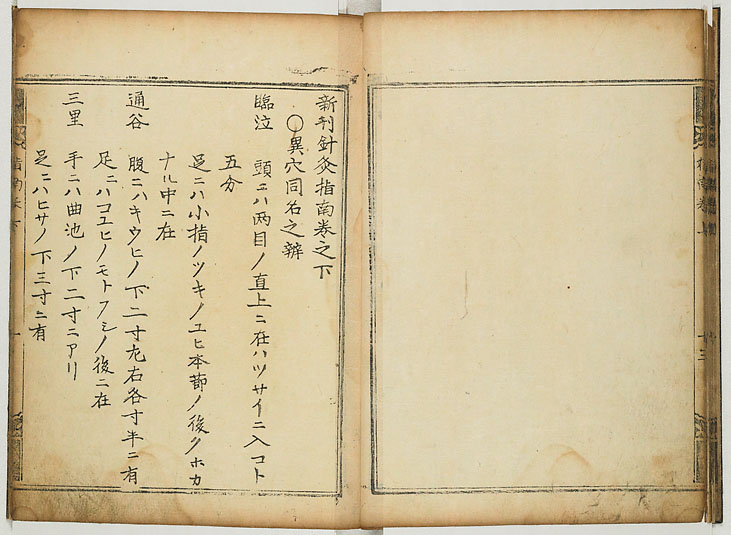 新刊針灸指南巻之下
○異穴同名之辨
臨泣 頭ニハ两目ノ直上ニ在ハツサイニ入コト
五分
足ニハ小指ノツキノユヒ本節ノ後クホカ
ナル中ニ在
通谷 腹ニハキウヒノ下二寸左右各寸半ニ有
足ニハコユヒノモトフシノ後ニ在
三里 手ニハ曲池ノ下二寸ニアリ
足ニハヒサノ下三寸ニ有